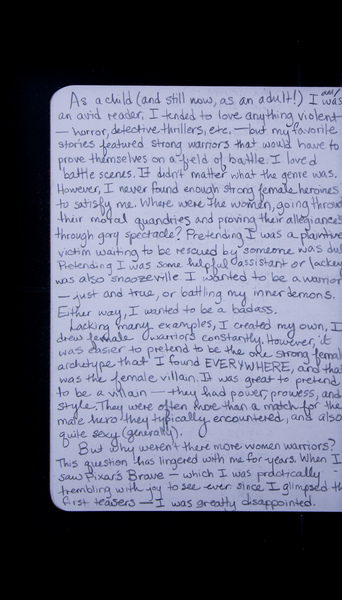 As a child (and still now, as an adult!) I am/was
an avid reader. I tended to love anything violent
— horror, detective thrillers, etc. — but my favorite
stories featured strong warriors that would have to
prove themselves on a field of battle. I loved
battle scenes. It didn't matter what the genre was.
However, I never found enough strong female heroines
to satisfy me. Where were the women, going throu
their moral quandries and proving their allegiances
through gory spectacle? Pretending I was a plaintive
victim waiting to be rescued by someone was dul
Pretending I was some helpful assistant or lackey
was also snoozeville. I wanted to be a warrior
— just and true, or battling my inner demons.
Either way, I wanted to be a badass.
Lacking many examples, I created my own, I
drew female warriors constantly. However, it
was easier to pretend to be the one strong femal
archetype that I found EVERYWHERE, and that
was the female villain. It was great to pretend
to be a villain — they had power, prowess, and
style. They were often more than a match for the
male hero they typically encountered, and also
quite sexy (generally).
But why weren't there more women warriors?
This question has lingered with me for years. When I
saw Pixar's Brave — which I was practically
trembling with joy to see ever since I glimpsed th
first teasers — I was greatly disappointed.